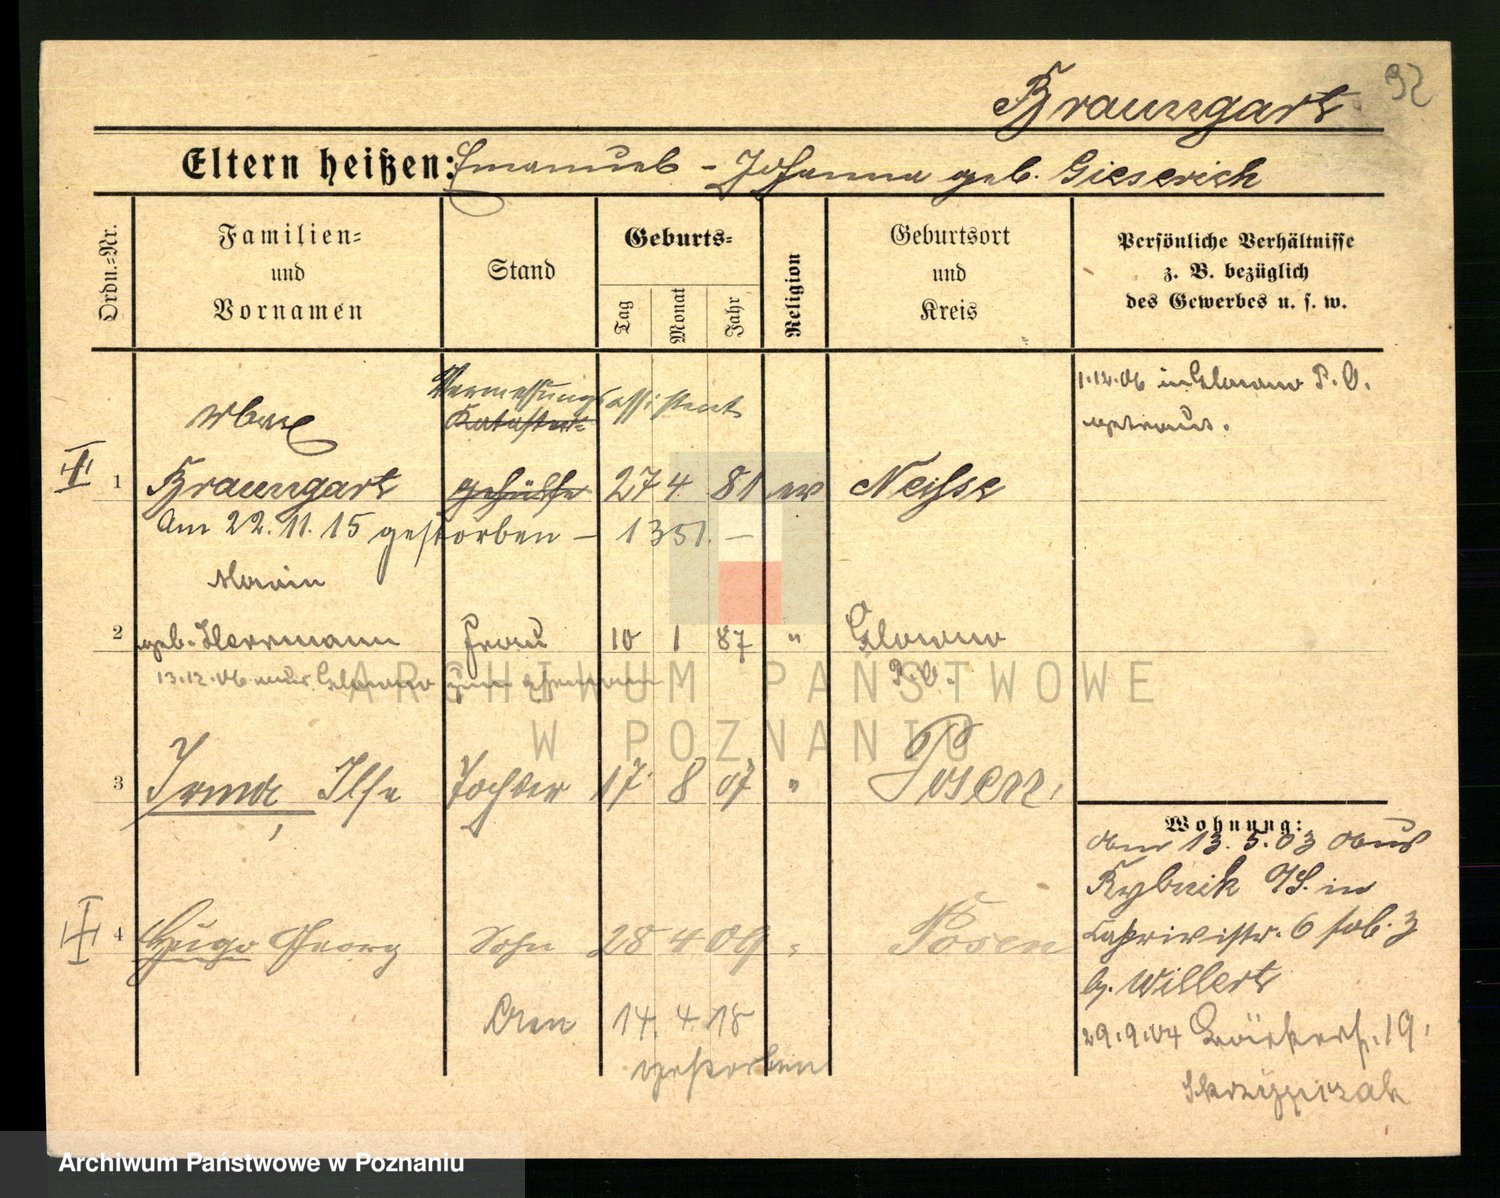 92
Braungart
Eltern heißen: Emanuel - Johanna geb. Gieserich
Ordn.-Nr.
Familien-
und
Vornamen
Stand
Geburts-
Tag
Monat
Jahr
Religion
Geburtsort
und
Kreis
Persönliche Verhältnisse
z. B. bezüglich
des Gewerbes u. s. w.
Vermessungsassistent
Max Kataster-
1 Braungart gehülfe 27 4 81 ev Neisse
1.12.06 in P. O.
getraut.
Am 22.11.15 gestorben - 1351. -
2 geb. Herrmann Frau 10 1 87 "
P. O.
13.12.06 aus zum Ehemann
3 Irma, Ilse Tochter 17. 8 07 " Posen,
4 Hugo Georg Sohn 28 4 09 " Posen
Den 14. 4. 18
gestorben
Wohnung:
13.5.03 aus
Rybnik O/S. in
Caprivistr. 6 b. 3
b. Willert
29.9.04 19.
Skrzypczak
ARCHIWUM PAŃSTWOWE
W POZNANIU
Archiwum Państwowe w Poznaniu